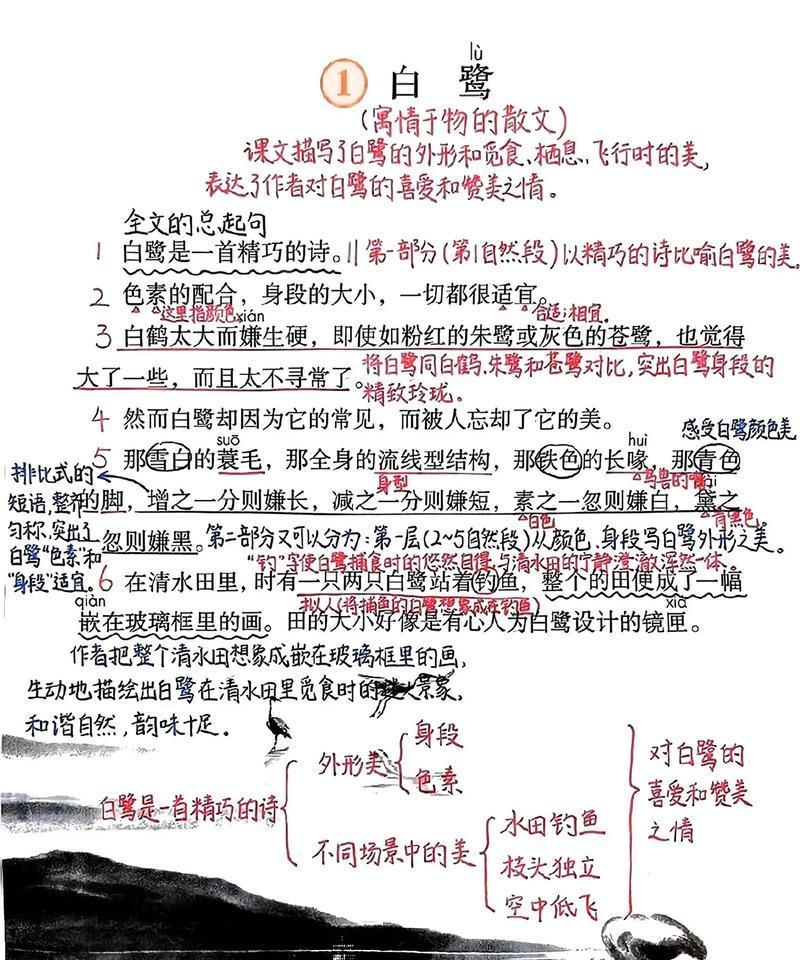 lù
1 白鹭
(寓情于物的散文)
课文描写了白鹭的外形和觅食、栖息、飞行时的美,
表达了作者对白鹭的喜爱和赞美之情。
全文的总起句
1 白鹭是一首精巧的诗。‖第一部分(第1自然段)以精巧的诗比喻白鹭的美。
2 色素的配合,身段的大小,一切都很适宜。
这里指颜色 合适;相宜。
xián
3 白鹤太大而嫌生硬,即使如粉红的朱鹭或灰色的苍鹭,也觉得
大了一些,而且太不寻常了。
将白鹭同白鹤、朱鹭和苍鹭对比,突出白鹭身段的
精致玲珑。
4 然而白鹭却因为它的常见,而被人忘却了它的美。
感受白鹭颜色美
suō huì
5 那雪白的蓑毛,那全身的流线型结构,那铁色的长喙,那青色
身型 鸟兽的嘴
的脚,增之一分则嫌长,减之一分则嫌短,素之一忽则嫌白,黛之
白色 青黑色。
忽则嫌黑。
排比式的
短语,整齐
匀称,突出了
白鹭"色素"和
"身段"适宜。
第二部分又可以分为:第一层(2~5自然段)从颜色、身段写白鹭外形之美。
"钓"字使白鹭捕食时的悠然自得与清水田的宁静澄澈浑然一体。
6 在清水田里,时有一只两只白鹭站着钓鱼,整个的田便成了一幅
拟人(将捕鱼的白鹭想象成在钓鱼)
qiàn xiá
嵌在玻璃框里的画。田的大小好像是有心人为白鹭设计的镜匣。
作者把整个清水田想象成嵌在玻璃框里的画,
生动地描绘出白鹭在清水田里觅食时的景象,
和谐自然,韵味十足。
白鹭是一首精巧的诗
外形美
身段
色素
不同场景中的美
水田钓鱼
枝头独立
空中低飞
对白鹭的
喜爱和赞美
之情